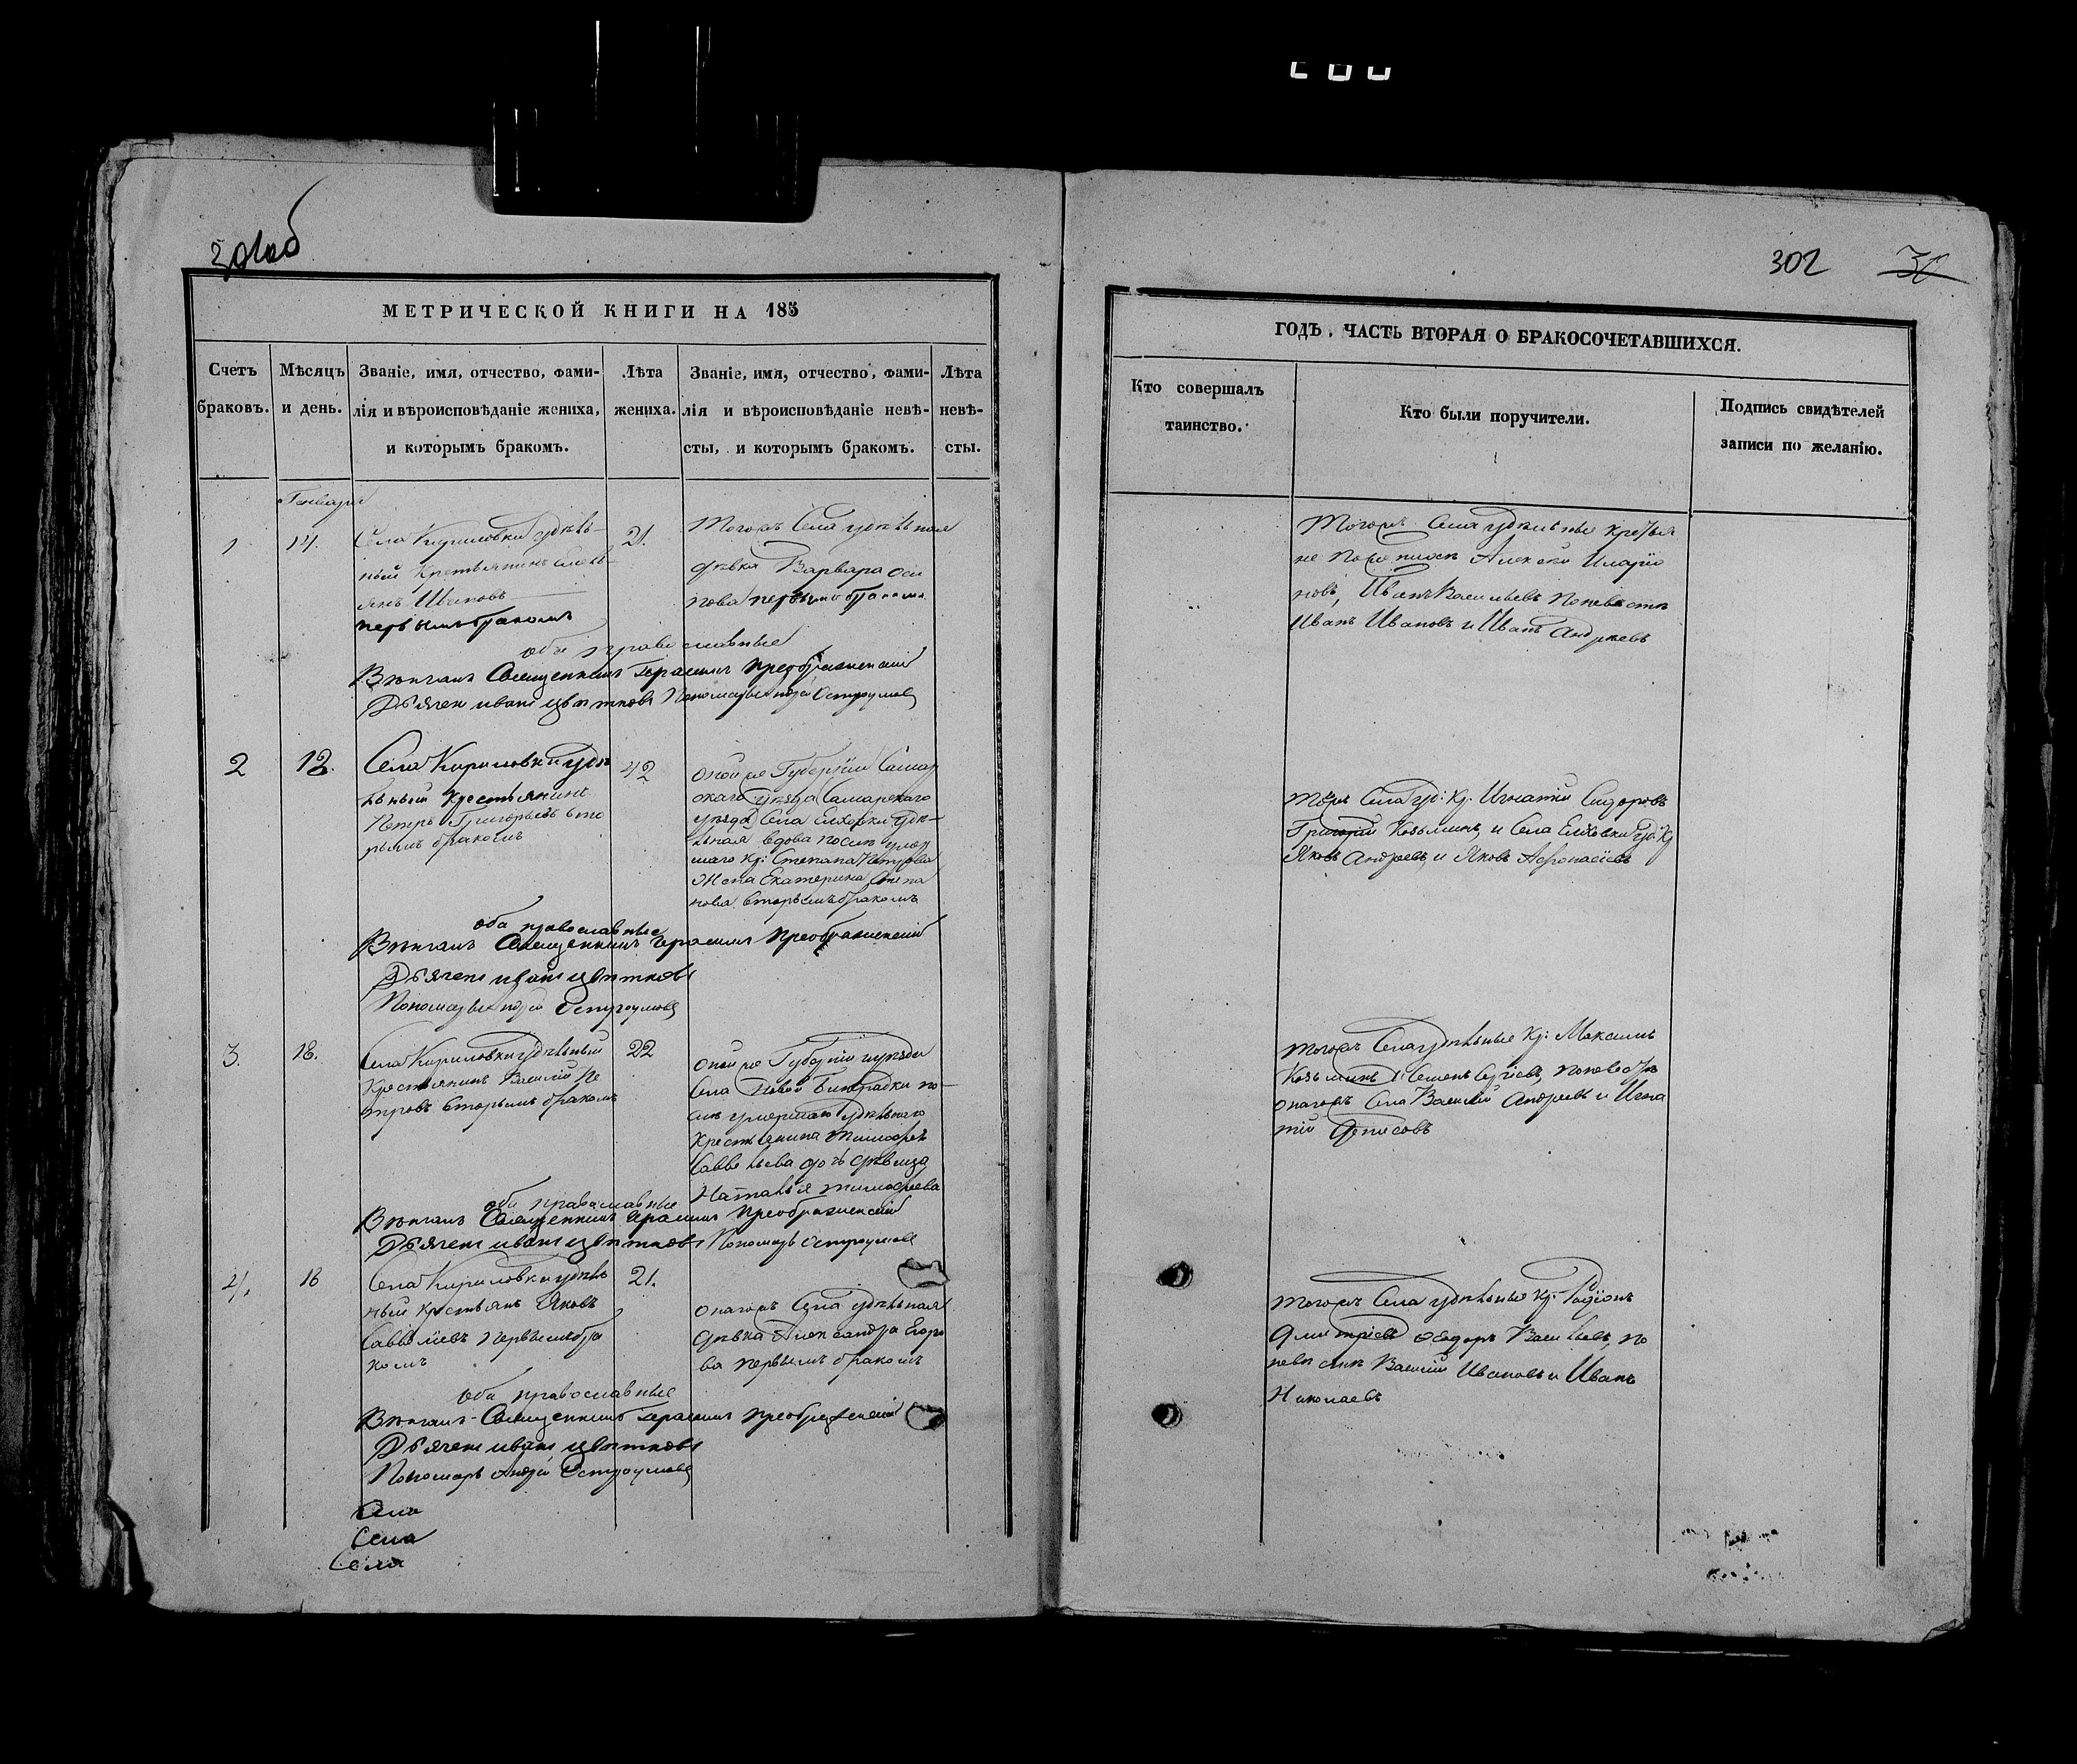 301об
МЕТРИЧЕСКОЙ КНИГИ НА 185
Счетъ браковъ.
Мѣсяцъ и день.
Званіе, имя, отчество, фами-
лія и вѣроисповѣданіе жениха,
и которымъ бракомъ.
Лѣта
жениха.
Званіе, имя, отчество, фами-
лія и вѣроисповѣданіе невѣ-
сты, и которымъ бракомъ.
Лѣта
невѣ-
сты.
Генваря
1
14.
Села Кириловки удѣль-
ный Крестьянинъ
Ивановъ
первымъ бракомъ
21.
Тогожъ Села удѣльная
дѣвка Варвара Оси
пова первымъ бракомъ
оба православные
Вѣнчалъ Священникъ Герасимъ Преображенскій
Дьячекъ Иванъ Цвѣтковъ Пономарь Андрей Остроумовъ
2
18.
Села Кириловки удѣ
льный Крестьянинъ
Петръ Григорьевъ вто
рымъ бракомъ
42
оной же Губерніи Самар
скаго уѣзда Самарскаго
уѣзда Села Елховки удѣ-
льная вдова послѣ умер
шаго Кр: Степана Петрова
Жена Екатерина Степа
нова вторымъ бракомъ
оба православные
Вѣнчалъ Священникъ Герасимъ Преображенскій
Дьячекъ Иванъ Цвѣтковъ
Пономарь Андрей Остроумовъ
3.
18.
Села Кириловки удѣльный
Крестьянинъ Василій Пе
тровъ вторымъ бракомъ
22
оной же Губерніи и уѣзда
Села Новой Бинарадки по-
слѣ умершаго удѣльнаго
Крестьянина Тимофея
Савельева дочь дѣвица
Наталья Тимофеева
оба православные
Вѣнчалъ Священникъ Герасимъ Преображенскій
Дьячекъ Иванъ Цвѣтковъ Пономарь Остроумовъ
4.
18
Села Кириловки удѣль
ный крестьянъ Яковъ
Савельевъ первымъ бра
комъ
21.
онагожъ Села удѣльная
дѣвка Александра Егоро
ва первымъ бракомъ
оба православные
Вѣнчалъ Священникъ Герасимъ Преображенскій
Дьячекъ Иванъ Цвѣтковъ
Пономарь Андрей Остроумовъ
Села
Села
Села
302
ГОДЪ. ЧАСТЬ ВТОРАЯ О БРАКОСОЧЕТАВШИХСЯ.
Кто совершалъ
таинство.
Кто были поручители.
Подпись свидѣтелей
записи по желанію.
Тогожъ Села удѣльные крестья
не по женихѣ Алексѣй Иларіо
новъ, Иванъ Васильевъ по невѣстѣ
Иванъ Ивановъ и Иванъ Андреевъ
Тогожъ Села Уд: Кр. Игнатій Сидоровъ
Григорій Козьминъ, и Села Елховки Уд: Кр
Яковъ Андреевъ и Яковъ Афонасіевъ
Тогожъ Села удѣльные Кр: Максимъ
Козьминъ и Семенъ Сергіевъ, по невѣстѣ
онагожъ Села Василій Андреевъ и Игна
тій Денисовъ
Тогожъ Села удѣльные Кр. Родіонъ
Дмитріевъ Ѳеодоръ Васильевъ, по
невѣстѣ Василій Ивановъ и Иванъ
Николаевъ